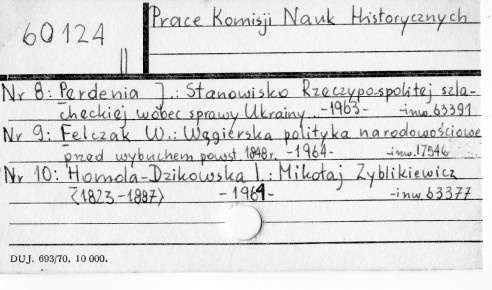 60124
II
Prace Komisji Nauk Historycznych
Nr 8: Perdenia J.: Stanowisko Rzeczypospolitej szla-
checkiej wobec sprawy Ukrainy -1963- -inw. 63391
Nr 9: Felczak W.: Węgierska polityka narodowościowa
przed wybuchem powst. 1848 r. -1964- -inw. 17546
Nr 10: Homola-Dzikowska I.: Mikołaj Zyblikiewicz
(1823-1887) -1964- -inw. 63377
DUJ. 693/70. 10 000.